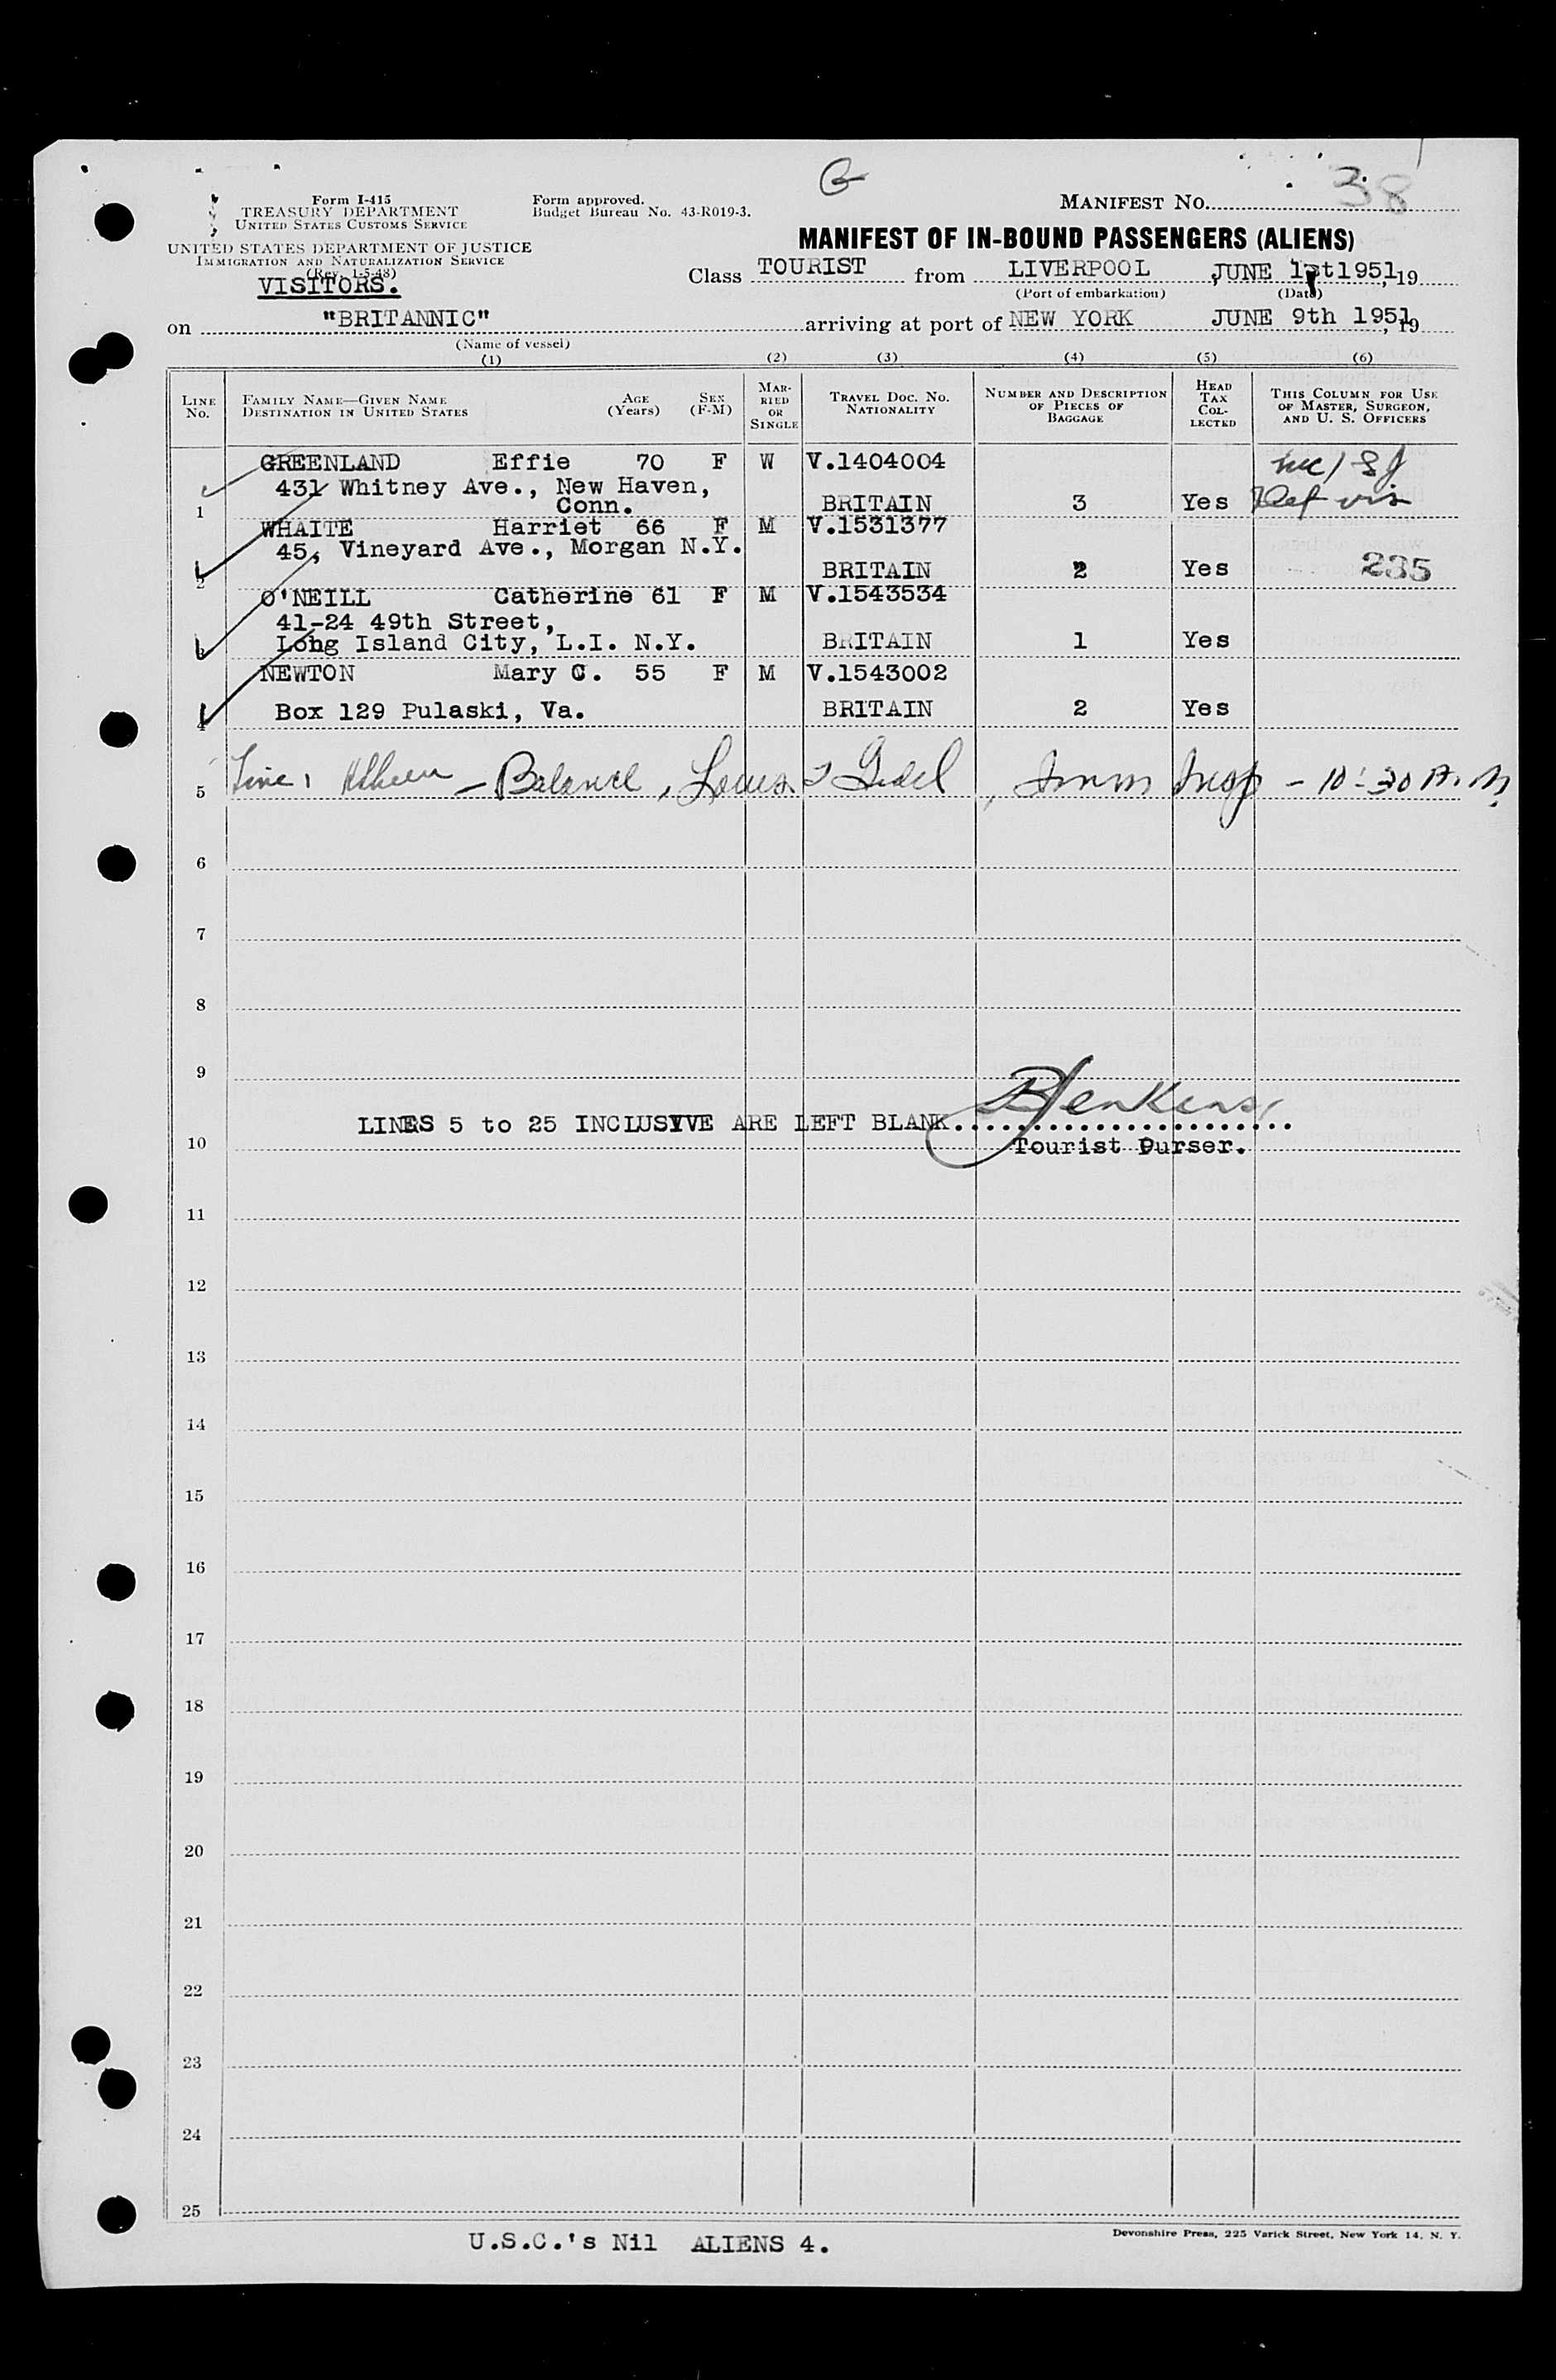 G
38
Form I-415
TREASURY DEPARTMENT
UNITED STATES CUSTOMS SERVICE
UNITED STATES DEPARTMENT OF JUSTICE
IMMIGRATION AND NATURALIZATION SERVICE
(Rev. 1-5-48)
VISITORS.
Form approved.
Budget Bureau No. 43-R019-3.
MANIFEST NO.
MANIFEST OF IN-BOUND PASSENGERS (ALIENS)
Class TOURIST from LIVERPOOL, JUNE 1st 1951, 19
(Port of embarkation) (Date)
on "BRITANNIC" arriving at port of NEW YORK JUNE 9th 1951, 19
(Name of vessel)
(1) (2) (3) (4) (5) (6)
LINE No.
FAMILY NAME—GIVEN NAME
DESTINATION IN UNITED STATES
AGE (Years)
SEX (F-M)
MARRIED OR SINGLE
TRAVEL DOC. NO. NATIONALITY
NUMBER AND DESCRIPTION OF PIECES OF BAGGAGE
HEAD TAX COLLECTED
THIS COLUMN FOR USE OF MASTER, SURGEON, AND U. S. OFFICERS
GREENLAND Effie 70 F W V.1404004
431 Whitney Ave., New Haven,
Conn.
1 BRITAIN 3 Yes
WHAITE Harriet 66 F M V.1531377
45, Vineyard Ave., Morgan N.Y.
2 BRITAIN 2 Yes 235
O'NEILL Catherine 61 F M V.1543534
41-24 49th Street,
3 Long Island City, L.I. N.Y. BRITAIN 1 Yes
NEWTON Mary C. 55 F M V.1543002
4 Box 129 Pulaski, Va. BRITAIN 2 Yes
5 Line 1 — Balance, Imm Insp — 10:30 A.M.
6
7
8
9
LINES 5 to 25 INCLUSIVE ARE LEFT BLANK. Jenkins
10 Tourist Purser.
11
12
13
14
15
16
17
18
19
20
21
22
23
24
25
U.S.C.'s Nil ALIENS 4.
Devonshire Press, 225 Varick Street, New York 14, N. Y.